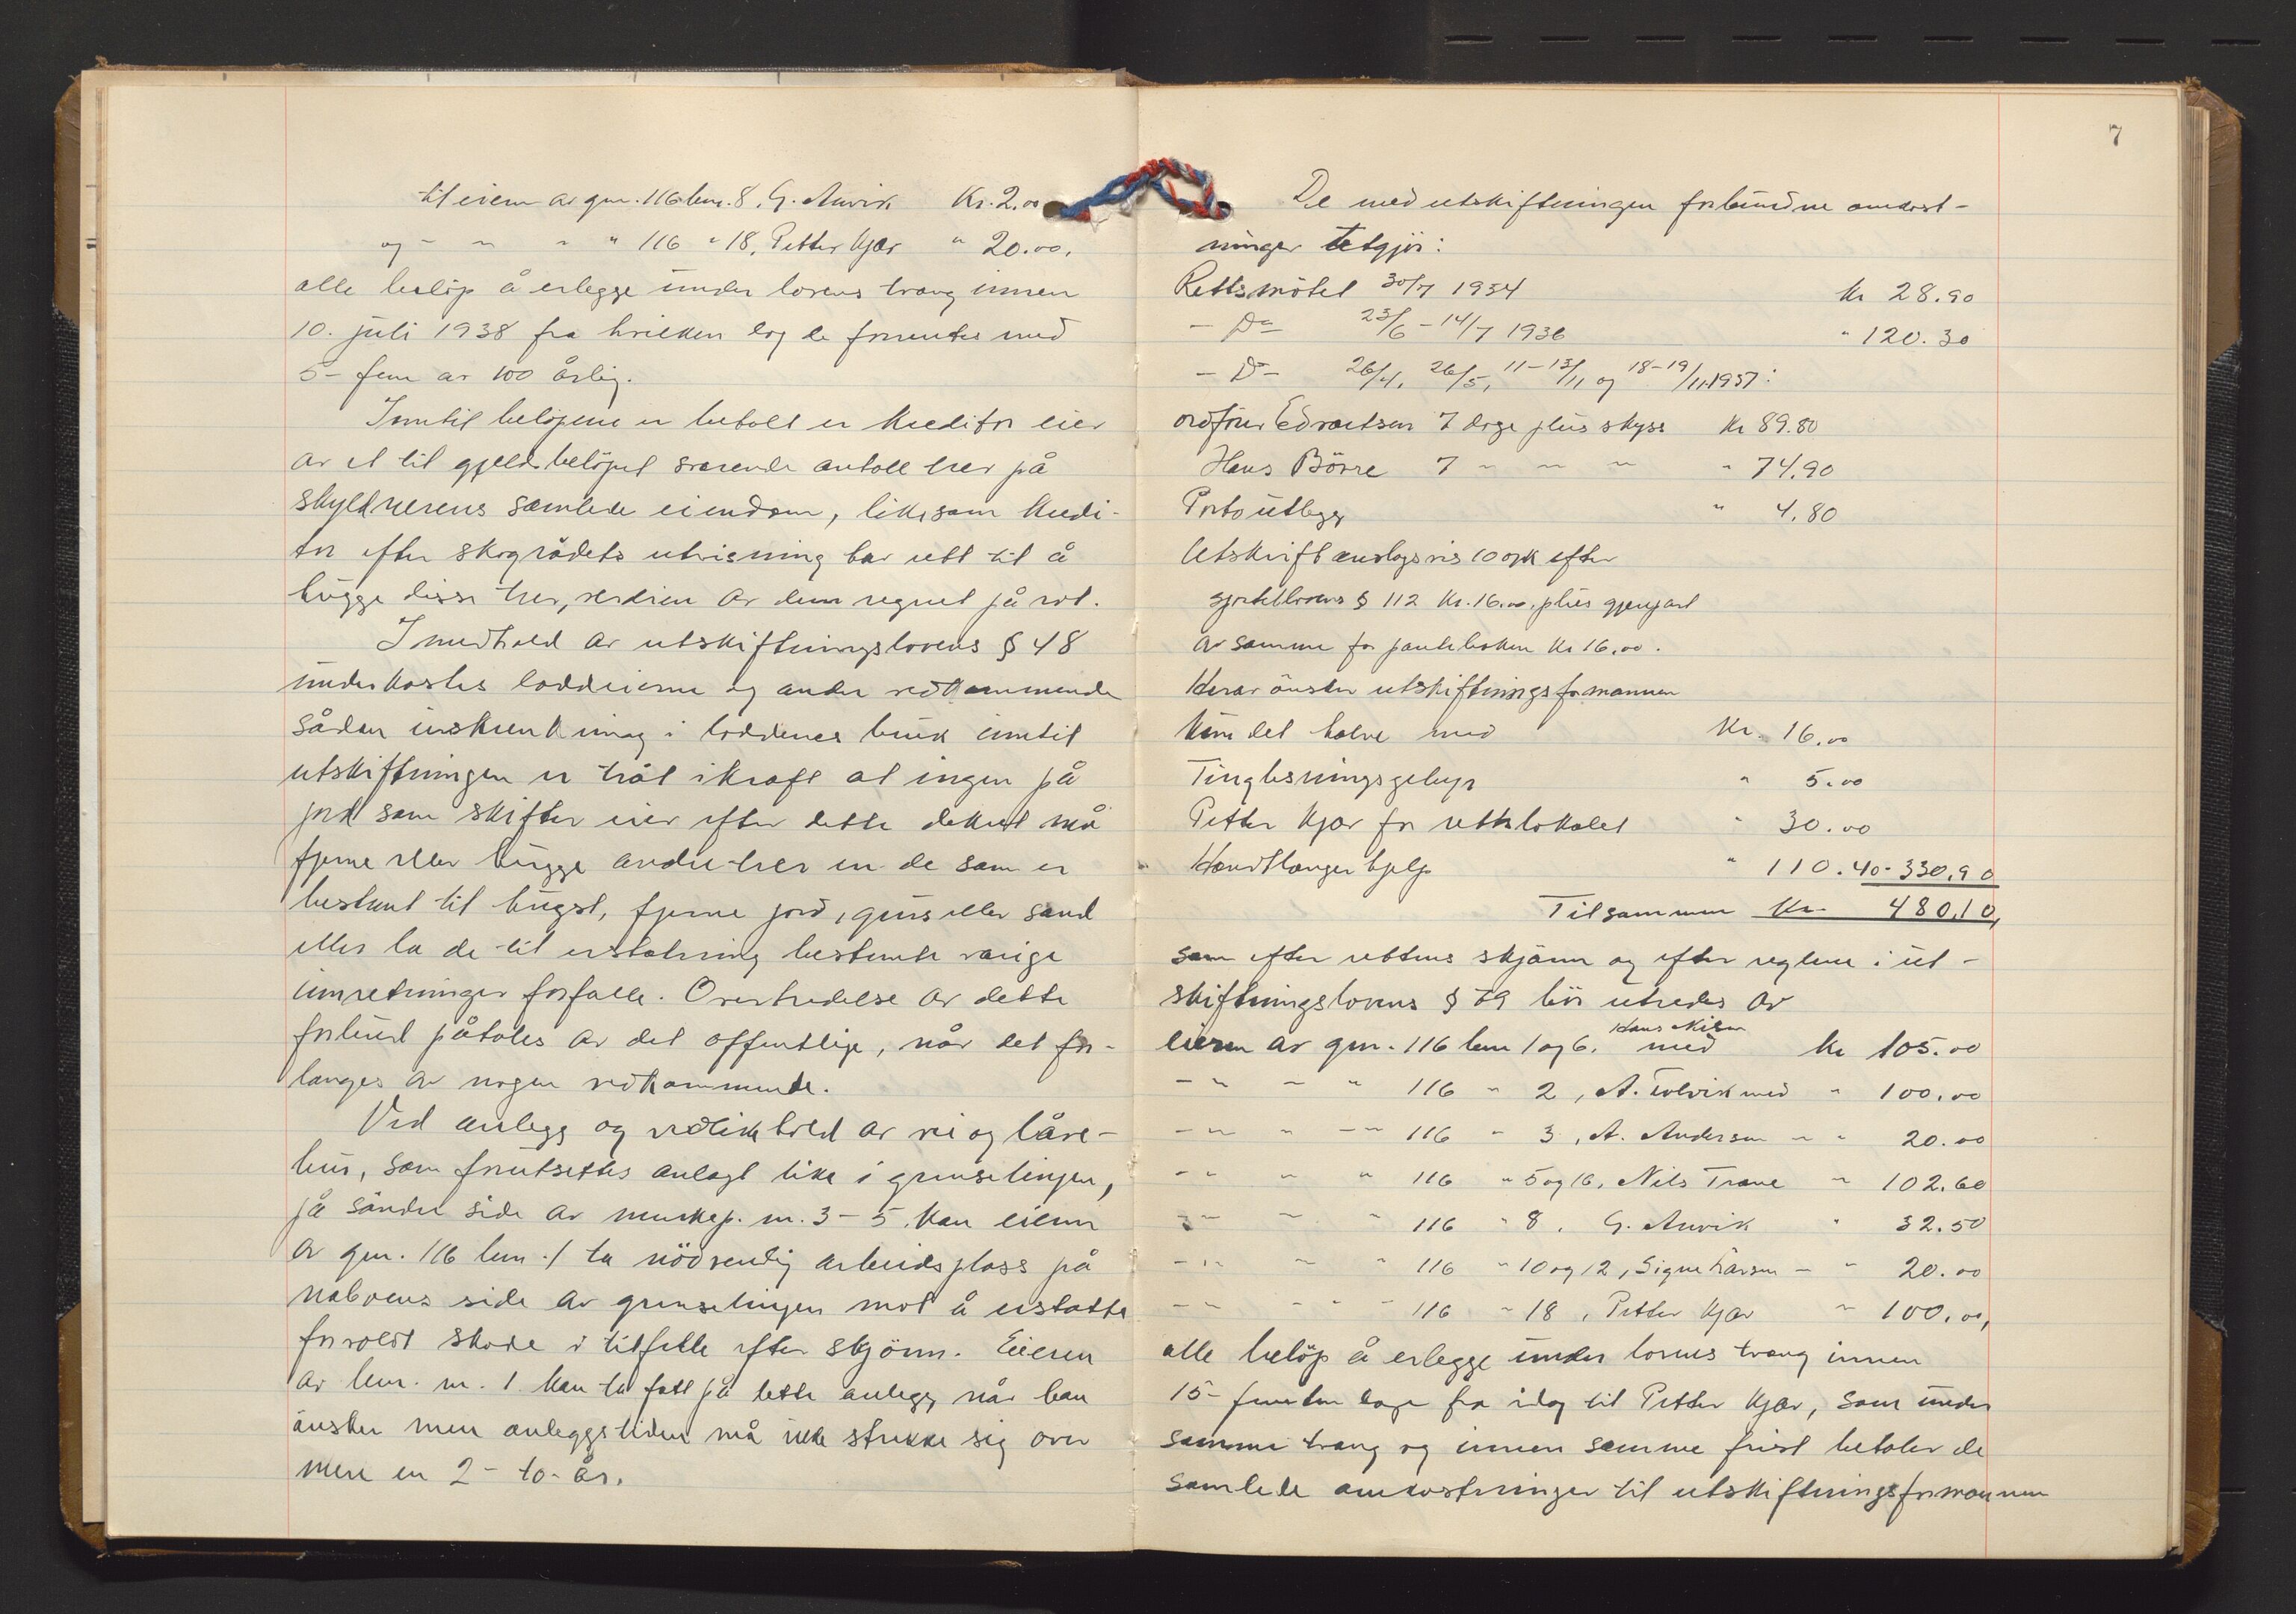 til eieren av gnr. 116 bnr. 8, G. Anvik Kr. 2.00
og - " " " 116 " 18, Petter Kjær " 20.00,
alle beløp å erlegge under lovens tvang innen
10. juli 1938 fra hvilken dag de forrentes med
5- fem av 100 årlig.
Inntil beløpene er betalt er kreditor eier
av et til gjeldsbeløpet svarende antall trær på
skyldnerens samlede eiendom, liksom kredi-
tor efter skogrådets utvisning har rett til å
hugge disse trær, verdien av dem regnet på rot.
I medhold av utskiftningslovens § 48
underkastes loddeierne og andre vedkommende
sådan innskrenkning i loddenes bruk inntil
utskiftningen er trådt i kraft at ingen på
jord som skifter eier efter dette dekret må
fjerne eller hugge andre trær en de som er
bestemt til hugst, fjerne jord, grus eller sand
eller la de til erstatning bestemte varige
innretninger forfalle. Overtredelse av dette
forbud påtales av det offentlige, når det for-
langes av nogen vedkommende.
Ved anlegg og vedlikehold av vei og
som forutsettes anlagt like i grenselinjen,
på søndre side av merkep. nr. 3-5, kan eieren
av gnr. 116 bnr. 1 ta nødvendig arbeidsplass på
naboens side av grenselinjen mot å erstatte
forvoldt skade i tilfelle efter skjønn. Eieren
av bnr. nr. 1 kan ta fatt på dette anlegg når han
ønsker men anleggstiden må ikke strekke sig over
mere en 2- to- år.
7
De med utskiftningen forbundne omkost-
ninger utgjør:
Rettsmøtet 30/7 1934 Kr 28.90
- Do 23/6 - 14/7 1936 " 120.30
- Do - 26/4, 26/5, 11-13/11 og 18-19/11.1937:
ordfører Edvartsen 7 dage plus skyss Kr 89.80
Hans Börre 7 " " " " 74.90
Porto utlegg " 4.80
Utskrift anslagsvis 10 ark efter
sportellovens § 112 Kr. 16.00, plus gjenpart
av samme for panteboken Kr 16.00.
Herav ønsker utskiftningsformannen
kun det halve med Kr. 16.00
Tinglesningsgebyr " 5.00
Petter Kjær for rettslokalet " 30.00
Håndtlanger hjelp " 110.40 - 330.90
Tilsammen Kr. 480.10,
som efter rettens skjønn og efter reglene i ut-
skiftningslovens § 79 bör utredes av
eieren av gnr. 116 bnr 1 og 6, Hans Nilsen med Kr 105.00
- " " " 116 " 2, A. Tolvik med " 100.00
- " " " 116 " 3, A. Andersen " " 20.00
- " " " 116 " 5 og 16, Nils Trane " 102.60
- " " " 116 " 8, G. Anvik " 32.50
- " " " 116 " 10 og 12, Signe Larsen - " 20.00
- " " " 116 " 18, Petter Kjær " 100.00,
alle beløp å erlegge under lovens tvang innen
15- femten dage fra idag til Petter Kjær, som under
samme tvang og innen samme frist betaler de
samlede omkostninger til utskiftningsformannen